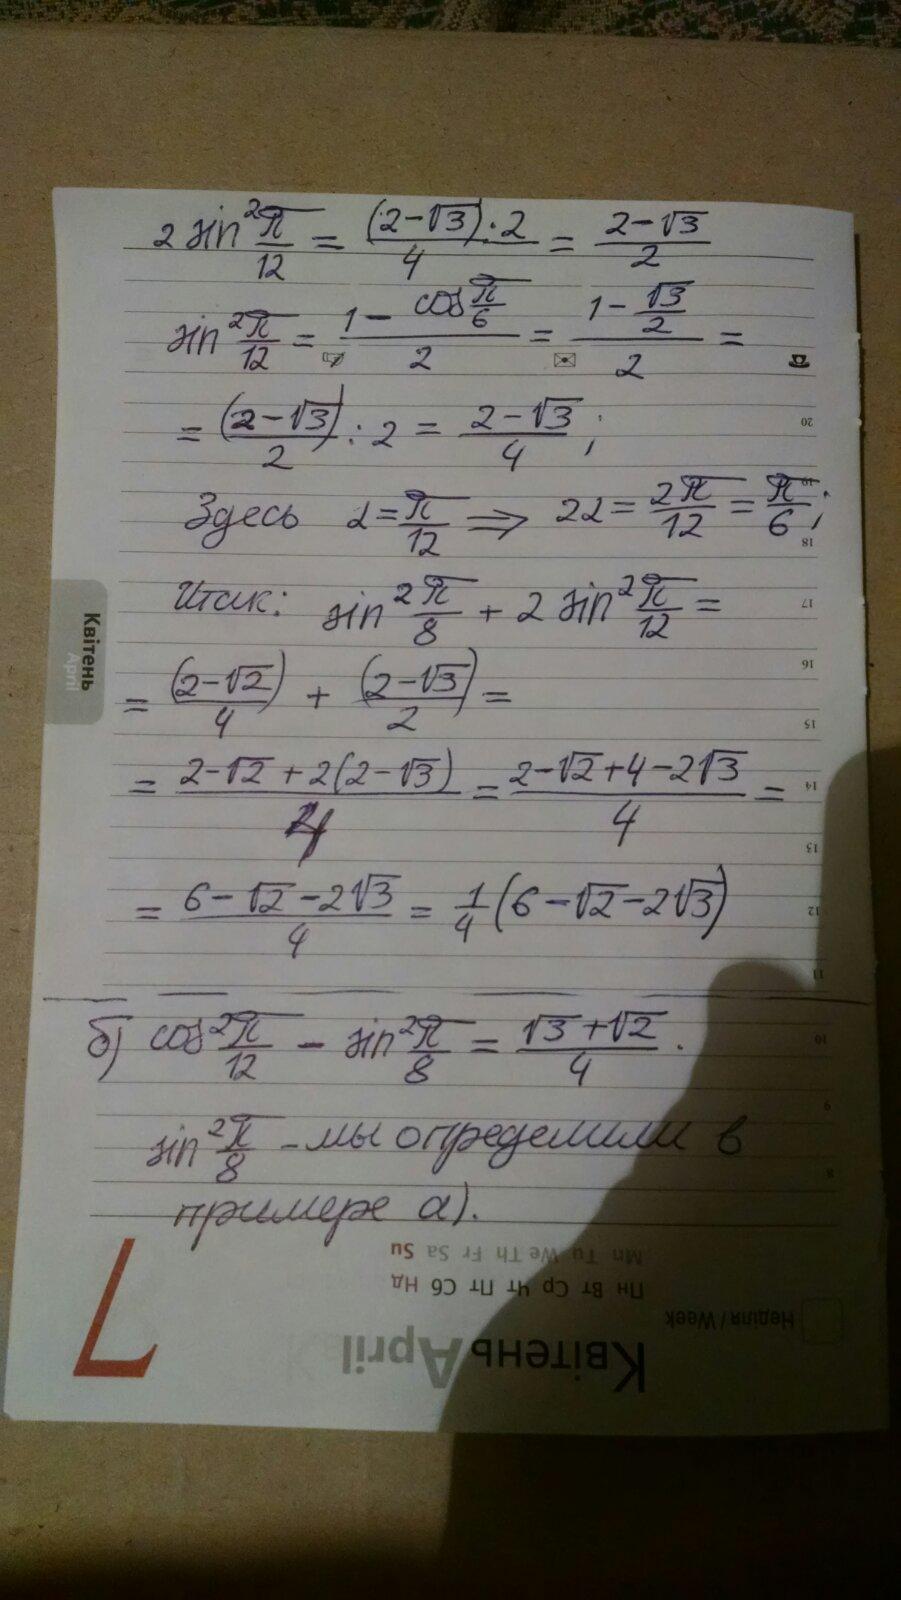 2 sin² π/12 = (2-√3)·2/4 = 2-√3/2
sin² π/12 = 1 - cos π/6 / 2 = 1 - √3/2 / 2 =
= (2-√3)/2 : 2 = 2-√3/4 ;
Здесь α = π/12 ⇒ 2α = 2π/12 = π/6 ;
Итак: sin² π/8 + 2 sin² π/12 =
= (2-√2)/4 + (2-√3)/2 =
= 2-√2+2(2-√3)/4 = 2-√2+4-2√3/4 =
= 6-√2-2√3/4 = 1/4 (6-√2-2√3)
б) cos² π/12 - sin² π/8 = √3+√2/4 .
sin² π/8 - мы определили в
примере а).
Квітень
April
20
19
18
17
16
15
14
13
12
11
10
9
8
Mn Tu We Th Fr Sa Su
Пн Вт Ср Чт Пт Сб Нд
Неділя / Week
Квітень April
7